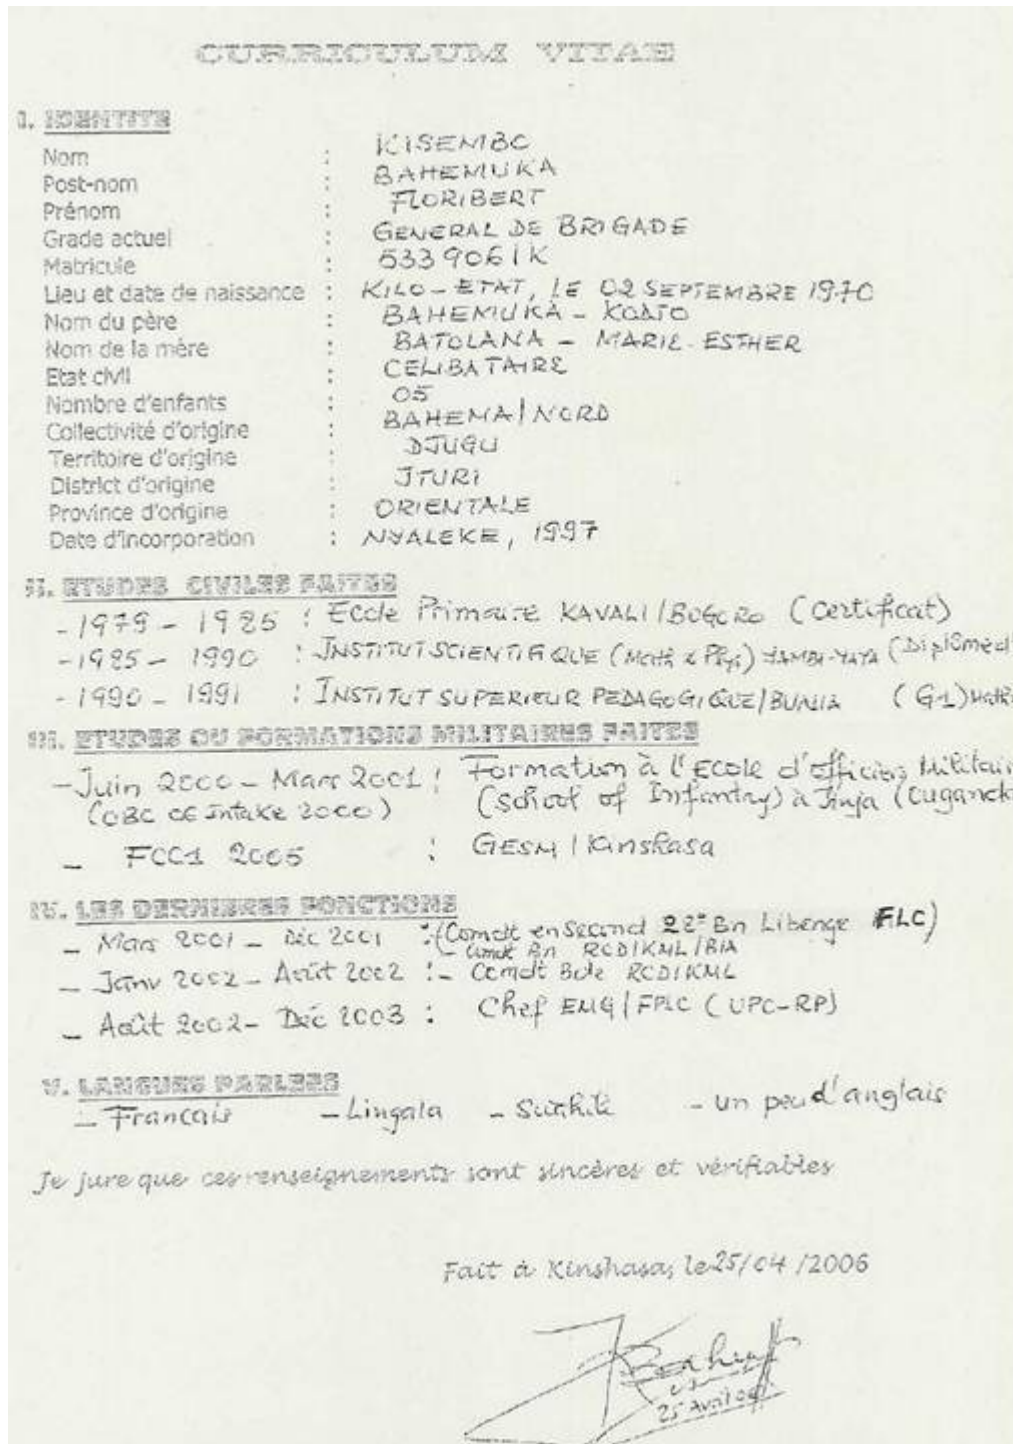 CURRICULUM VITAE
I. IDENTITE
Nom : KISEMBO
Post-nom : BAHEMUKA
Prénom : FLORIBERT
Grade actuel : GENERAL DE BRIGADE
Matricule : 5339061K
Lieu et date de naissance : KILO-ETAT, LE 02 SEPTEMBRE 1970
Nom du père : BAHEMUKA -
Nom de la mère : BATOLANA - MARIE-ESTHER
Etat civil : CELIBATAIRE
Nombre d'enfants : 05
Collectivité d'origine : BAHEMA/NORD
Territoire d'origine : DJUGU
District d'origine : ITURI
Province d'origine : ORIENTALE
Date d'incorporation : NYALEKE, 1997
II. ETUDES CIVILES FAITES
- 1979 - 1985 : Ecole Primaire KAVALI/BOGORO (Certificat)
- 1985 - 1990 : INSTITUT SCIENTIFIQUE (Math & Phy)
- 1990 - 1991 : INSTITUT SUPERIEUR PEDAGOGIQUE/BUNIA (G1)
III. ETUDES OU FORMATIONS MILITAIRES FAITES
- Juin 2000 - Mars 2001 : Formation à l'Ecole d'officiers Militair
(OBC 06 Intake 2000) (School of Infantry) à Jinja (Ougand
- FCC1 2005 : GESM/Kinshasa
IV. LES DERNIERES FONCTIONS
- Mars 2001 - Déc 2001 : (Comdt en Second 22e Bn Libenge FLC)
- Comdt Bn RCD/KML/BIA
- Janv 2002 - Août 2002 : - Comdt Bde RCD/KML
- Août 2002 - Déc 2003 : Chef EMG/FPLC (UPC-RP)
V. LANGUES PARLEES
- Français - Lingala - Swahili - un peu d'anglais
Je jure que ces renseignements sont sincères et vérifiables
Fait à Kinshasa, le 25/04/2006
25 Avril 06